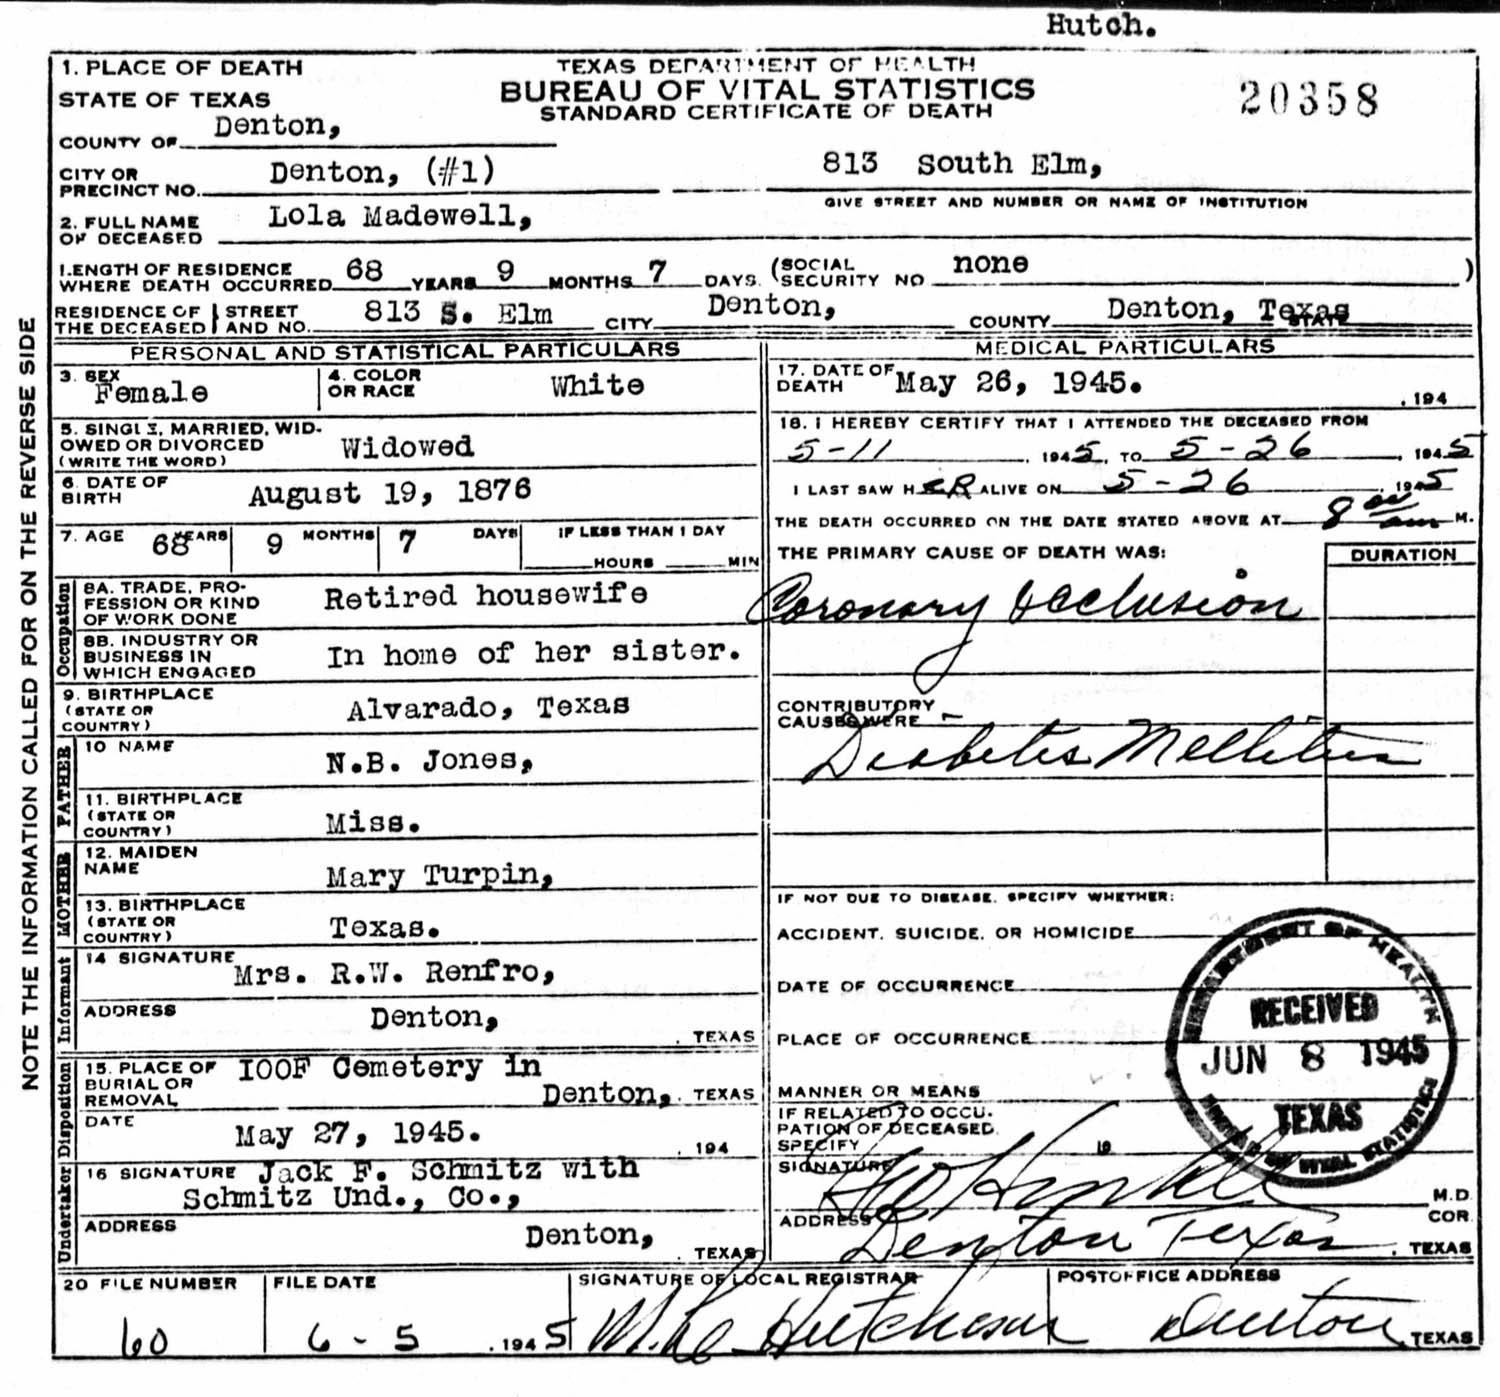 Hutch.
1. PLACE OF DEATH
STATE OF TEXAS
TEXAS DEPARTMENT OF HEALTH
BUREAU OF VITAL STATISTICS
STANDARD CERTIFICATE OF DEATH
20358
COUNTY OF Denton,
CITY OR PRECINCT NO. Denton, (#1)
813 South Elm,
GIVE STREET AND NUMBER OR NAME OF INSTITUTION
2. FULL NAME OF DECEASED Lola Madewell,
LENGTH OF RESIDENCE WHERE DEATH OCCURRED 68 YEARS 9 MONTHS 7 DAYS. (SOCIAL SECURITY NO none )
RESIDENCE OF THE DECEASED STREET AND NO. 813 S. Elm CITY Denton, COUNTY Denton, Texas STATE
NOTE THE INFORMATION CALLED FOR ON THE REVERSE SIDE
PERSONAL AND STATISTICAL PARTICULARS
3. SEX Female
4. COLOR OR RACE White
5. SINGLE, MARRIED, WIDOWED OR DIVORCED (WRITE THE WORD) Widowed
6. DATE OF BIRTH August 19, 1876
7. AGE 68 YEARS 9 MONTHS 7 DAYS IF LESS THAN 1 DAY HOURS MIN
Occupation
8A. TRADE, PROFESSION OR KIND OF WORK DONE Retired housewife
8B. INDUSTRY OR BUSINESS IN WHICH ENGAGED In home of her sister.
9. BIRTHPLACE (STATE OR COUNTRY) Alvarado, Texas
FATHER
10 NAME N.B. Jones,
11. BIRTHPLACE (STATE OR COUNTRY) Miss.
MOTHER
12. MAIDEN NAME Mary Turpin,
13. BIRTHPLACE (STATE OR COUNTRY) Texas.
Informant
14 SIGNATURE Mrs. R.W. Renfro,
ADDRESS Denton, . TEXAS
Disposition
15. PLACE OF BURIAL OR REMOVAL IOOF Cemetery in
Denton, . TEXAS
DATE May 27, 1945. . 194
Undertaker
16 SIGNATURE Jack F. Schmitz with
Schmitz Und., Co.,
ADDRESS Denton, . TEXAS
MEDICAL PARTICULARS
17. DATE OF DEATH May 26, 1945. , 194
18. I HEREBY CERTIFY THAT I ATTENDED THE DECEASED FROM
5-11 , 1945, TO 5-26 , 1945
I LAST SAW HER ALIVE ON 5-26 , 1945
THE DEATH OCCURRED ON THE DATE STATED ABOVE AT 8 00 am M.
THE PRIMARY CAUSE OF DEATH WAS: DURATION
Coronary Occlusion
CONTRIBUTORY CAUSES WERE -
Diabetes Mellitus
IF NOT DUE TO DISEASE, SPECIFY WHETHER:
ACCIDENT, SUICIDE, OR HOMICIDE
DATE OF OCCURRENCE
PLACE OF OCCURRENCE
MANNER OR MEANS
IF RELATED TO OCCUPATION OF DECEASED, SPECIFY
DEPARTMENT OF HEALTH
RECEIVED
JUN 8 1945
TEXAS
BUREAU OF VITAL STATISTICS
SIGNATURE M.D.
COR.
ADDRESS Denton Texas , TEXAS
20 FILE NUMBER 60
FILE DATE 6-5 , 1945
SIGNATURE OF LOCAL REGISTRAR Hutcheson
POSTOFFICE ADDRESS Denton, TEXAS